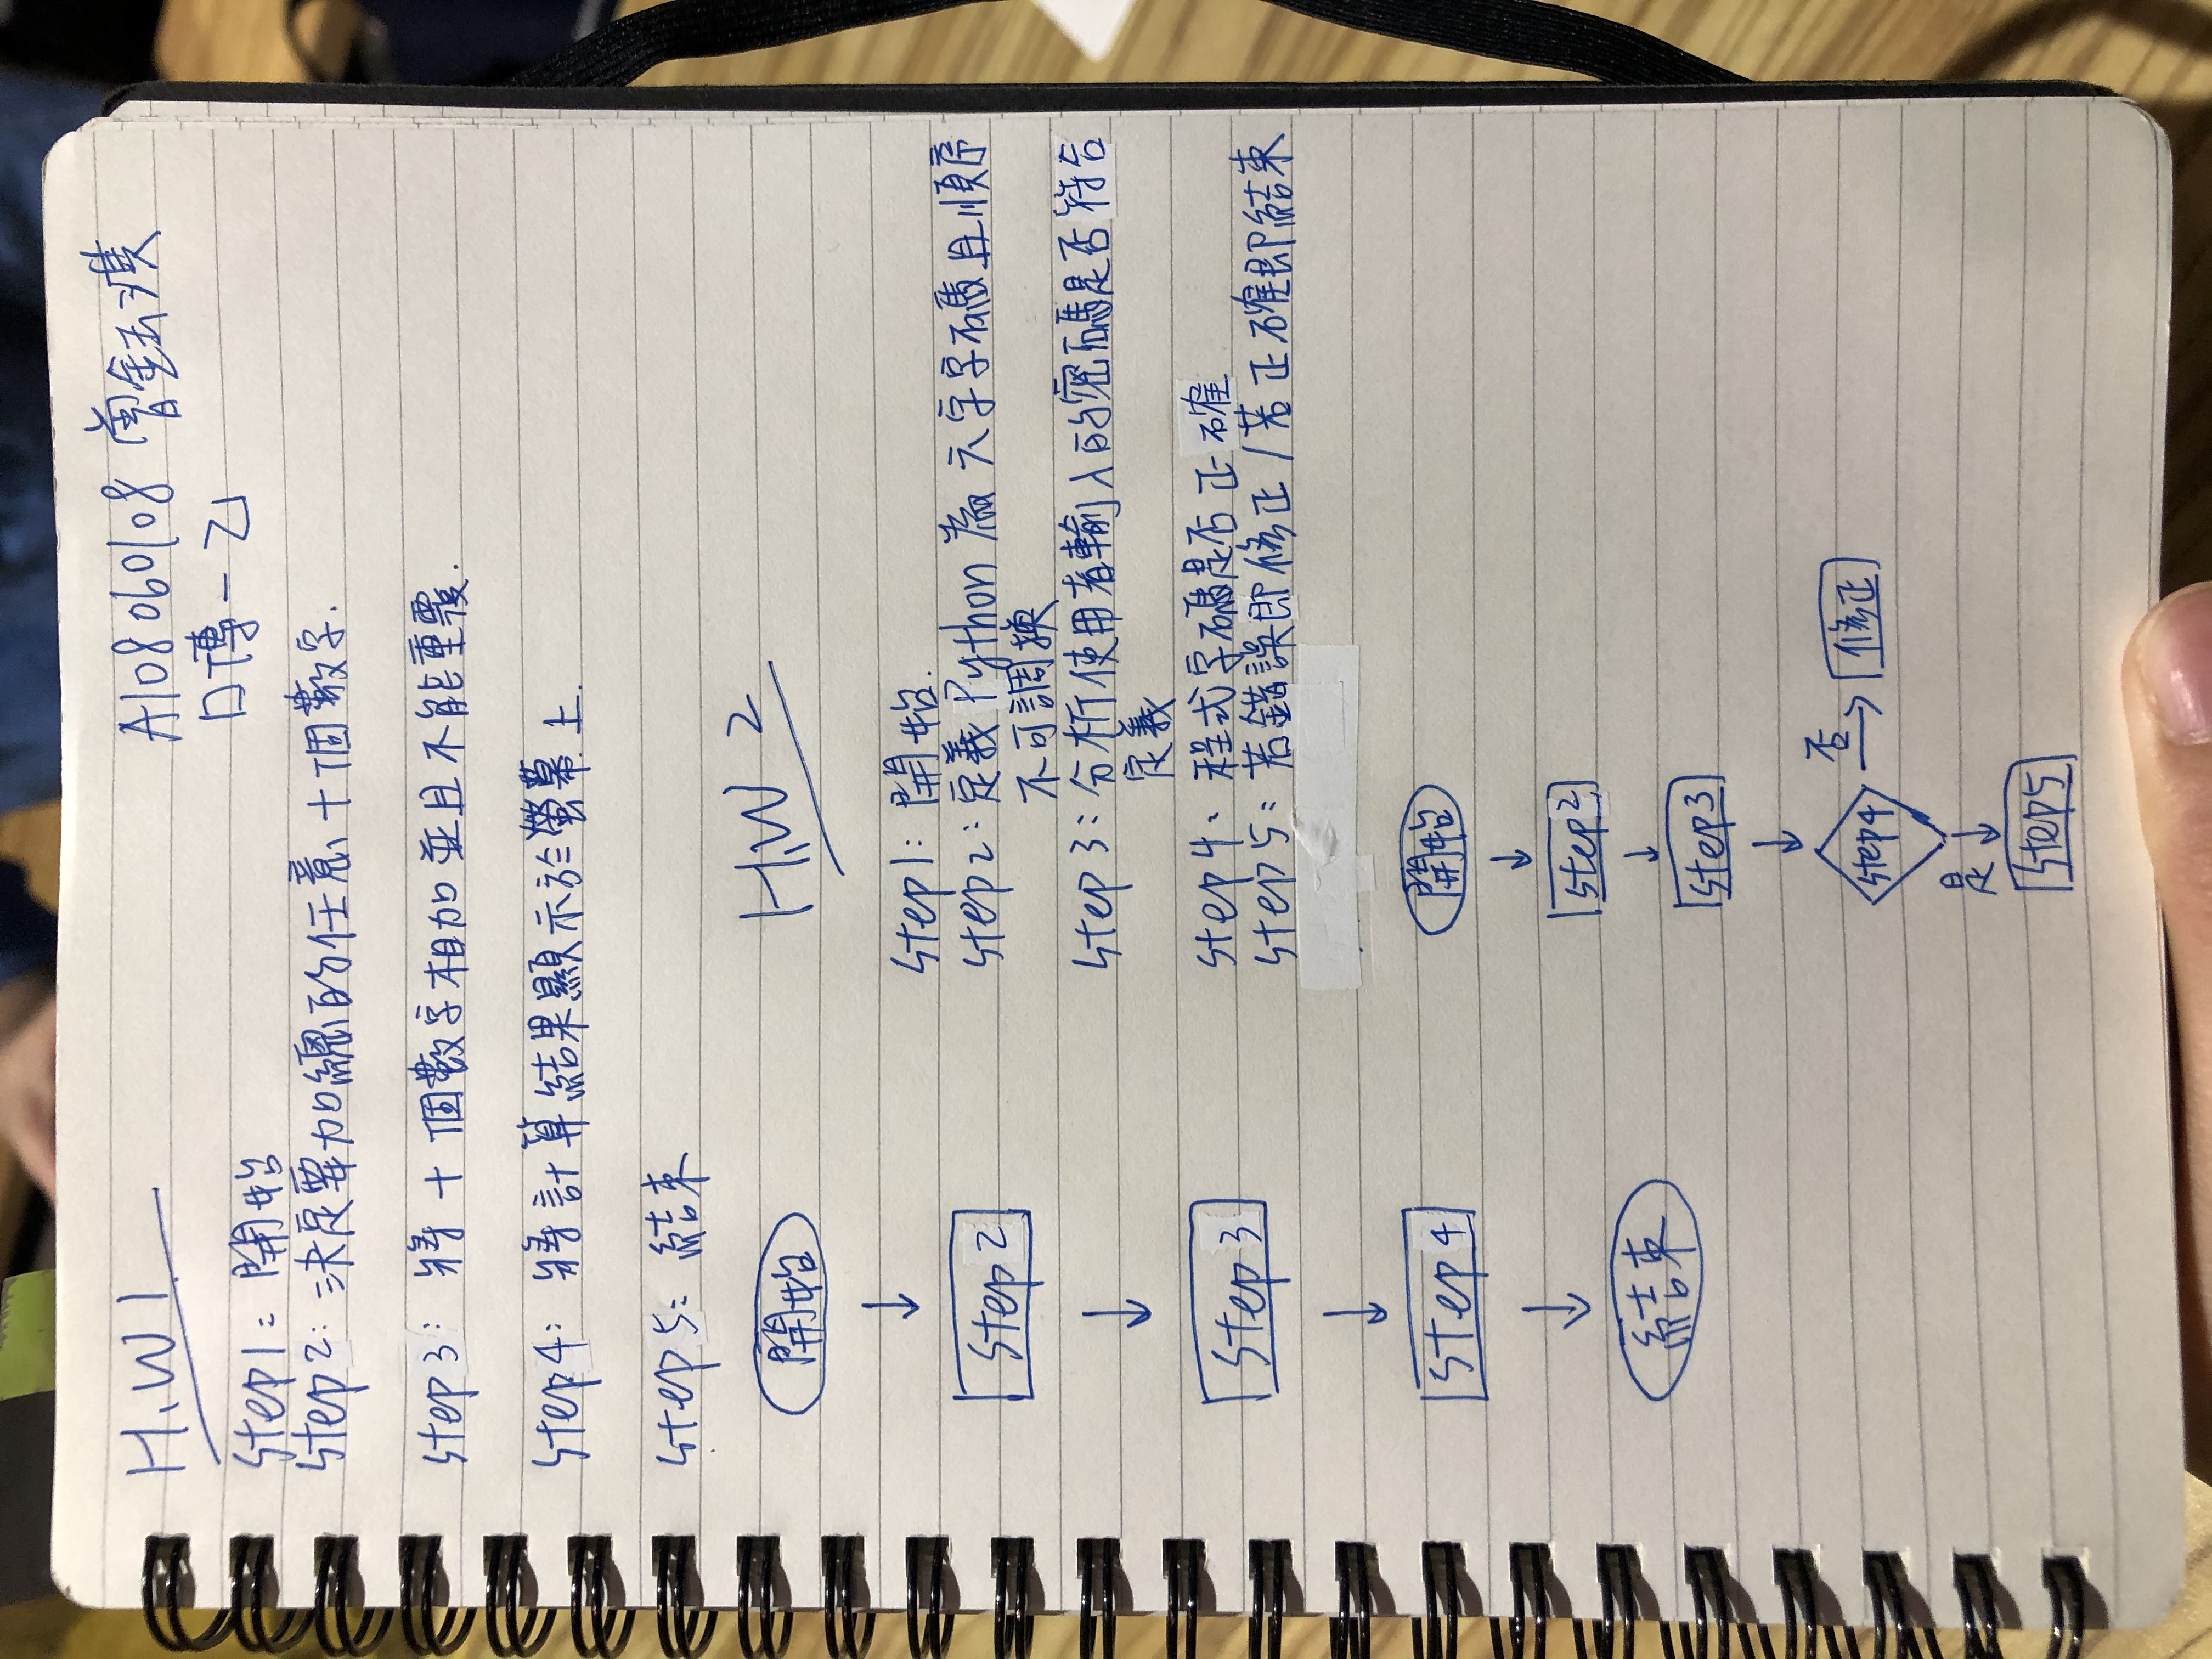 H.W 1
A108060108 曾鈺淇
口傳一乙
Step1: 開始
Step2: 決定要加總的任意十個數字.
Step3: 將十個數字相加並且不能重覆.
Step4: 將計算結果顯示於螢幕上.
Step5: 結束
開始
Step2
Step3
Step4
結束
H.W 2
Step1: 開始.
Step2: 定義Python為六字字碼且順序
不可調換
Step3: 分析使用者輸入的密碼是否符合
定義
Step4: 程式字碼是否正確
Step5: 若錯誤即修正/若正確即結束
開始
Step2
Step3
Step4
否
修正
是
Step5